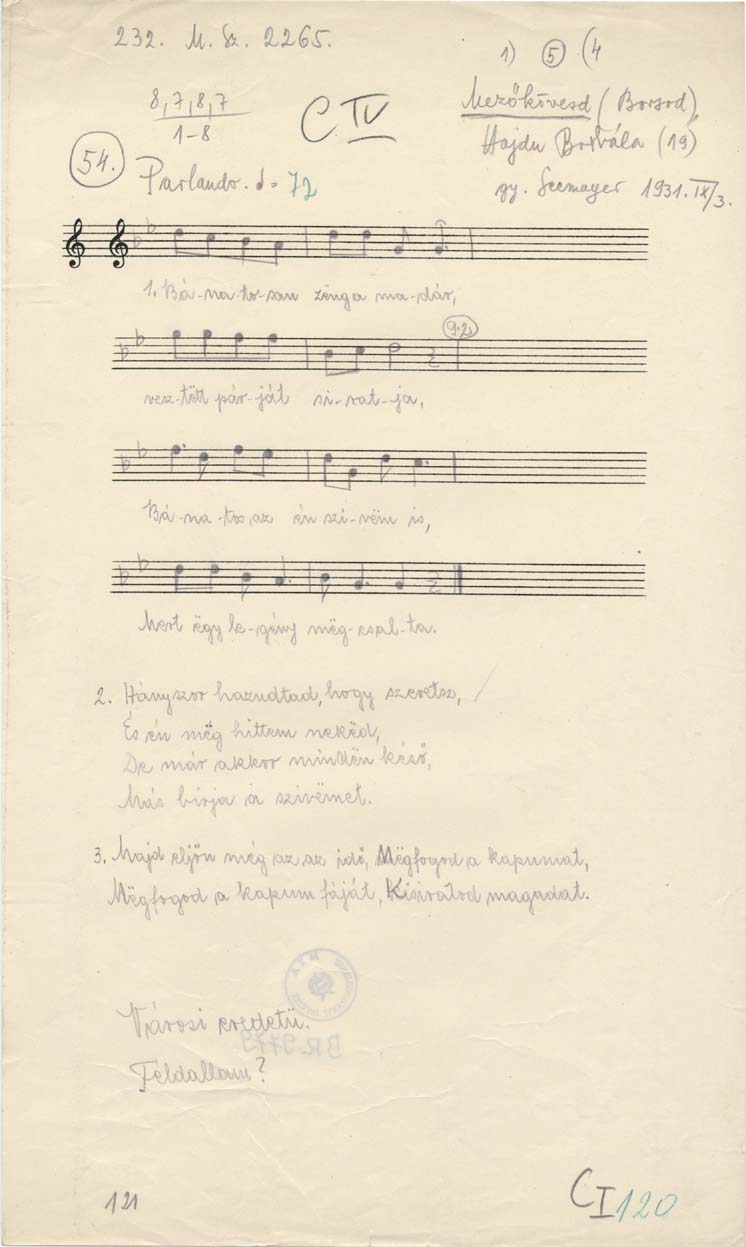 232. M. Sz. 2265.
1) 5 (4
8,7,8,7
1-8
C IV
Mezőkövesd (Borsod),
Hajdu Borbála (19)
gy. Seemayer 1931. IX/3.
54.
Parlando. = 72
1. Bá-na-to-san zëng a ma-dár,
9.2.
vesz-tëtt pár-ját si-rat-ja,
Bá-na-tos az én szi-vëm is,
Mert ëgy le-gény mëg-csal-ta.
2. Hányszor hazudtad, hogy szeretsz, /
És én mëg hittem nekëd,
De már akkor mindën késő,
Más birja a szivëmet.
3. Majd eljön még az az idő, Mëgfogod a kapumat,
Mëgfogod a kapum fáját, Kisiratod magadat.
Városi eredetü.
BR 9779
Féldallam?
121
C I 120